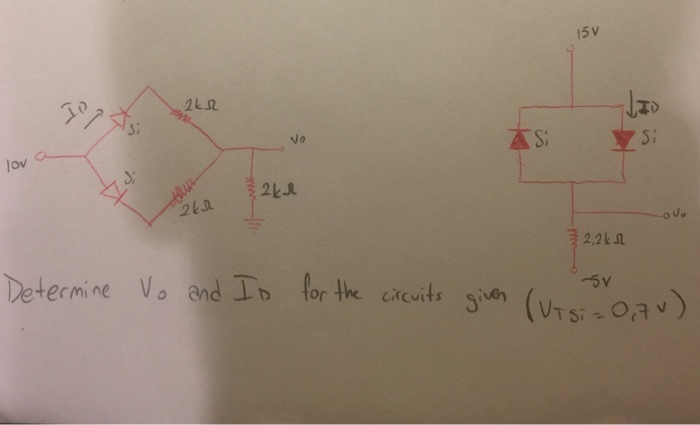 15V
ID
2kΩ
Si
ID
Si
Si
10V
Vo
Si
2kΩ
2kΩ
Vo
2,2kΩ
-5V
Determine Vo and ID for the circuits given (VT Si = 0,7 V)